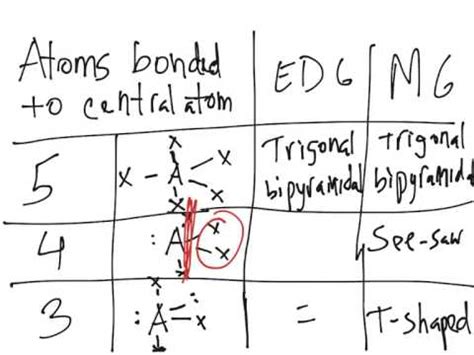 Atoms bonded
to central atom
EDG
MG
5
X-A-X
X
X
X
Trigonal
bipyramidal
Trigonal
bipyramidal
4
:A
X
X
See-saw
3
X
:A-X
=
T-shaped